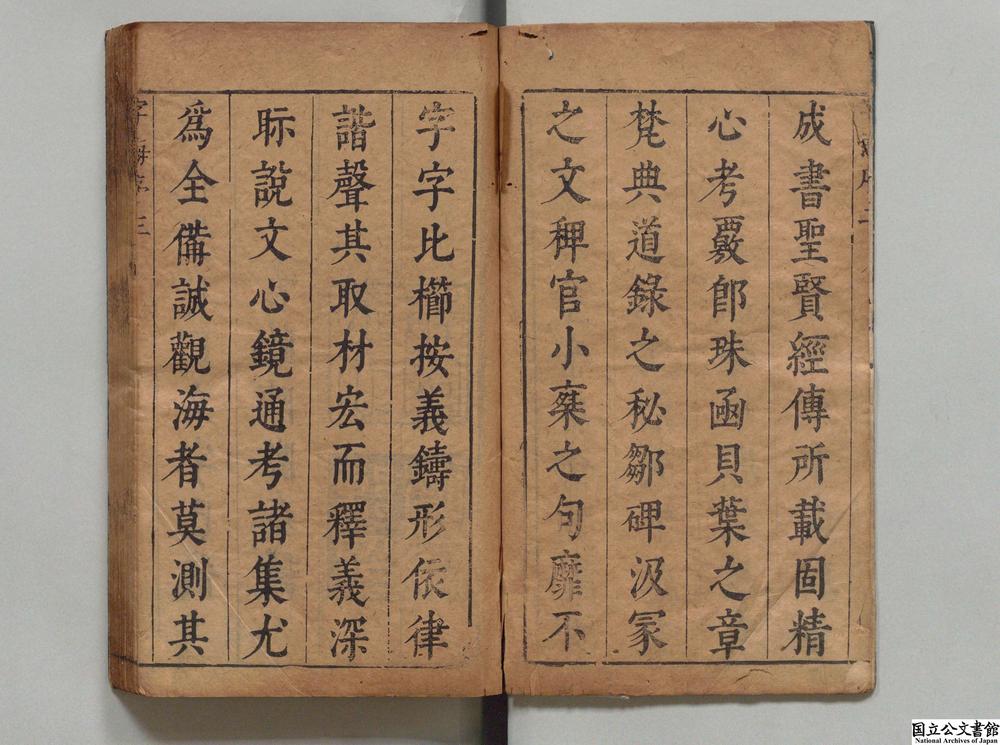 成書聖賢經傳所載固精
心考覈卽珠函貝葉之章
梵典道錄之秘鄒碑汲冢
之文稗官小乘之句靡不
字字比櫛按義鑄形依律
諧聲其取材宏而釋義深
眎說文心鏡通考諸集尤
爲全備誠觀海者莫測其
字海序 三
国立公文書館
National Archives of Japan